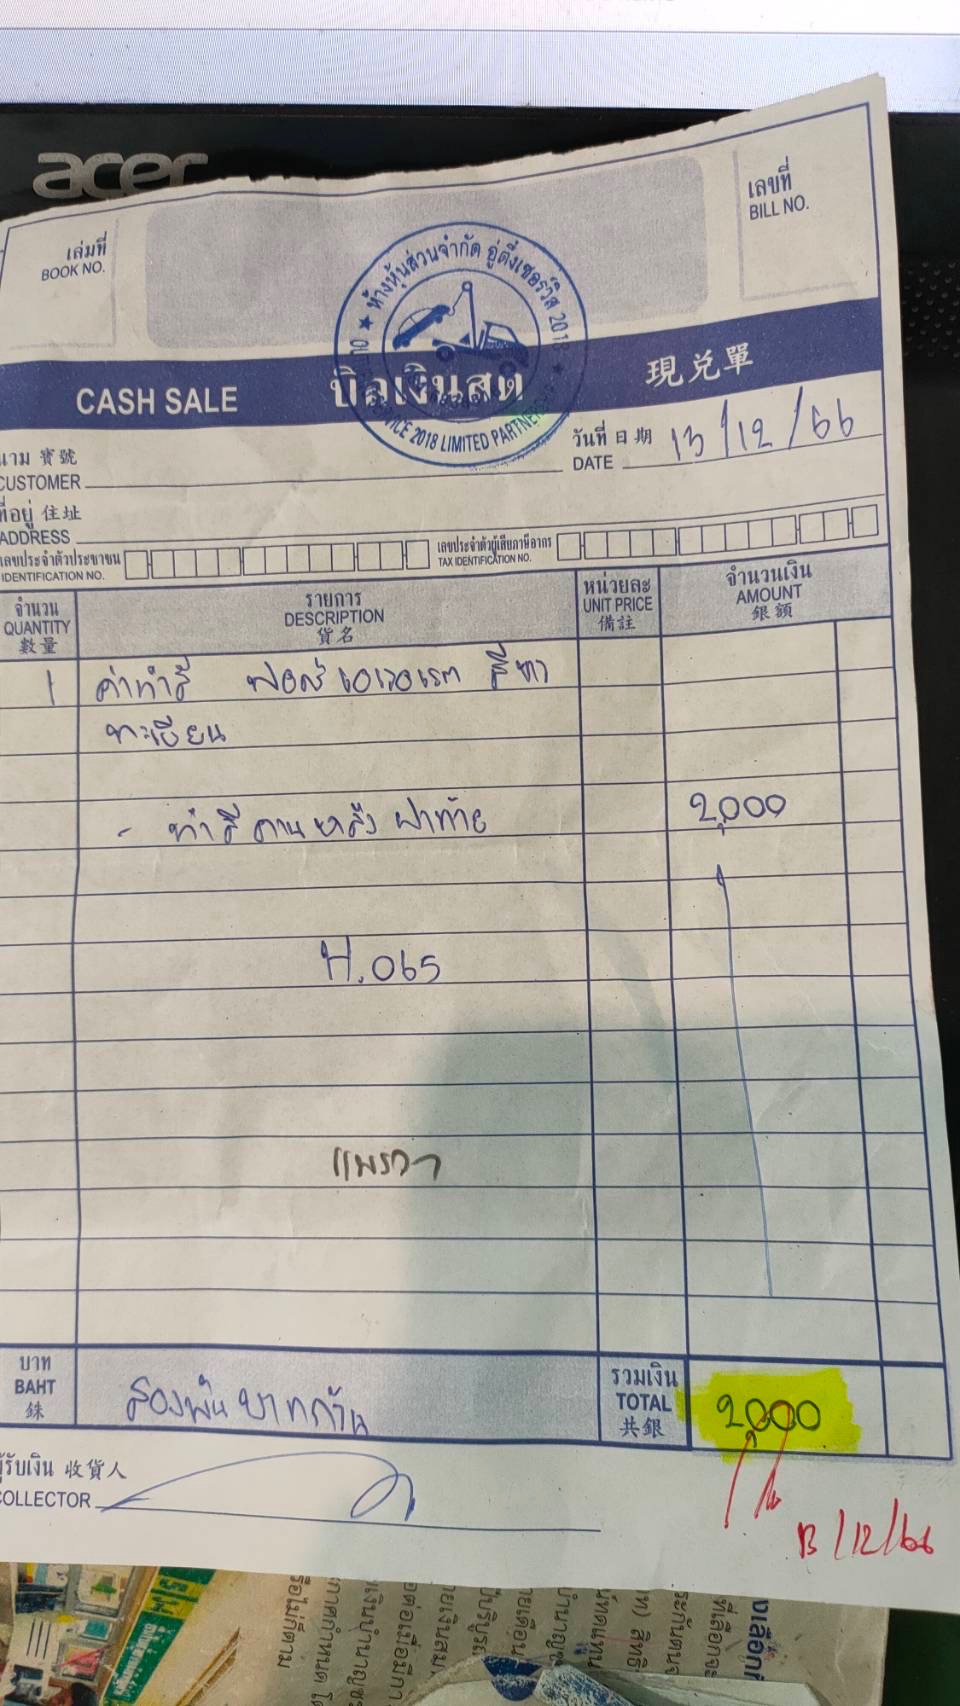 acer
เล่มที่
BOOK NO.
เลขที่
BILL NO.
ห้างหุ้นส่วนจำกัด อู่ตึ๋งเซอร์วิส 2018
SERVICE 2018 LIMITED PARTNERSHIP
CASH SALE บิลเงินสด 現兑單
นาม 寳號
CUSTOMER
วันที่ 日期 13/12/66
DATE
ที่อยู่ 住址
ADDRESS
เลขประจำตัวประชาชน
IDENTIFICATION NO.
เลขประจำตัวผู้เสียภาษีอากร
TAX IDENTIFICATION NO.
จำนวน
QUANTITY
數量
รายการ
DESCRIPTION
貨名
หน่วยละ
UNIT PRICE
備註
จำนวนเงิน
AMOUNT
銀額
1 ค่าทำสี ฟอร์ด เอเวอเรท สีเทา
ทะเบียน
- ทำสี คานหลัง ฝาท้าย 2,000
H.065
แพรวา
บาท
BAHT
銖
สองพันบาทถ้วน
รวมเงิน
TOTAL
共銀
2,000
ผู้รับเงิน 收貨人
COLLECTOR
13/12/66